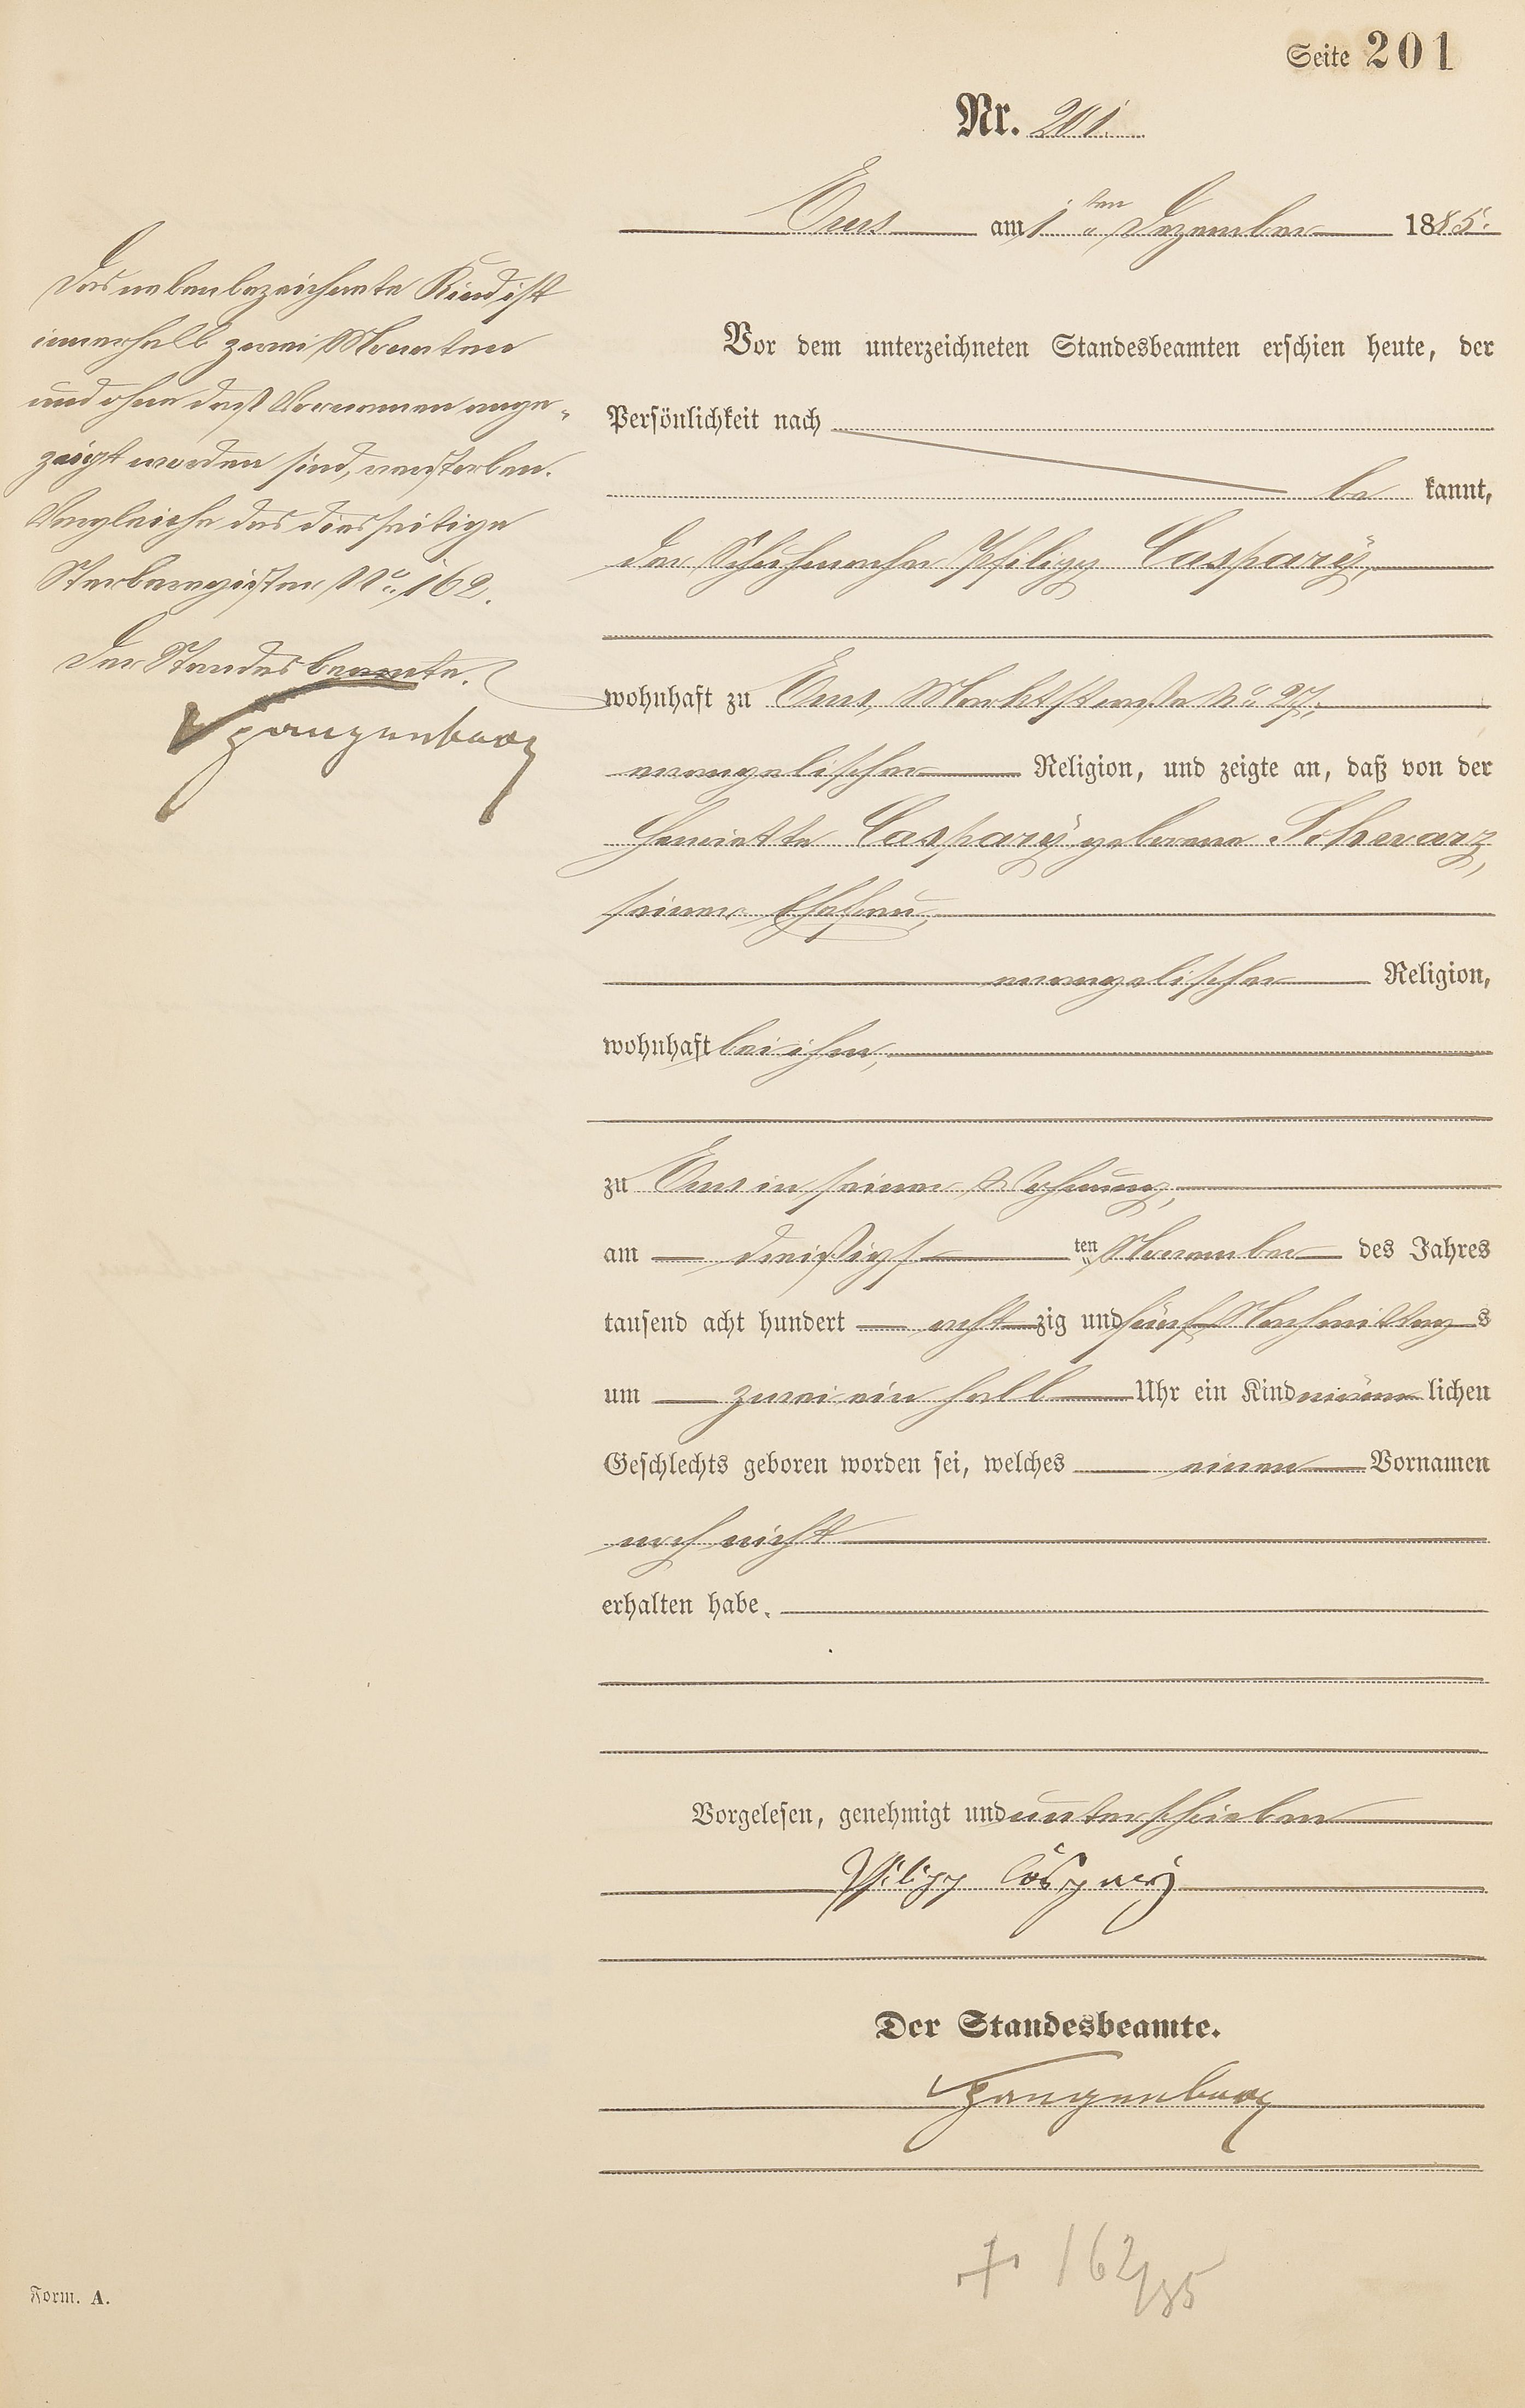 Seite 201
Nr. 201.
Ems am 1ten Dezember 1885.
Vor dem unterzeichneten Standesbeamten erschien heute, der
Persönlichkeit nach
be kannt,
der Schuhmacher Philipp Caspary,
wohnhaft zu Ems, Marktstraße No. 27,
evangelischer Religion, und zeigte an, daß von der
Henriette Caspary geborene Schwarz,
seiner Ehefrau,
evangelischer Religion,
wohnhaft bei ihm,
zu Ems in seiner Wohnung,
am dreißigsten November des Jahres
tausend acht hundert achtzig und fünf Nachmittags
um zwei ein halb Uhr ein Kind männlichen
Geschlechts geboren worden sei, welches einen Vornamen
noch nicht
erhalten habe.
Vorgelesen, genehmigt und unterschrieben
Philipp Caspary
Der Standesbeamte.
Das nebenbezeichnete Kind ist
innerhalb zwei Monaten
und ohne daß Vornamen ange-
zeigt worden sind, verstorben.
Vergleiche das diesseitige
Sterberegister No. 162.
Der Standesbeamte.
+ 162/85
Form. A.